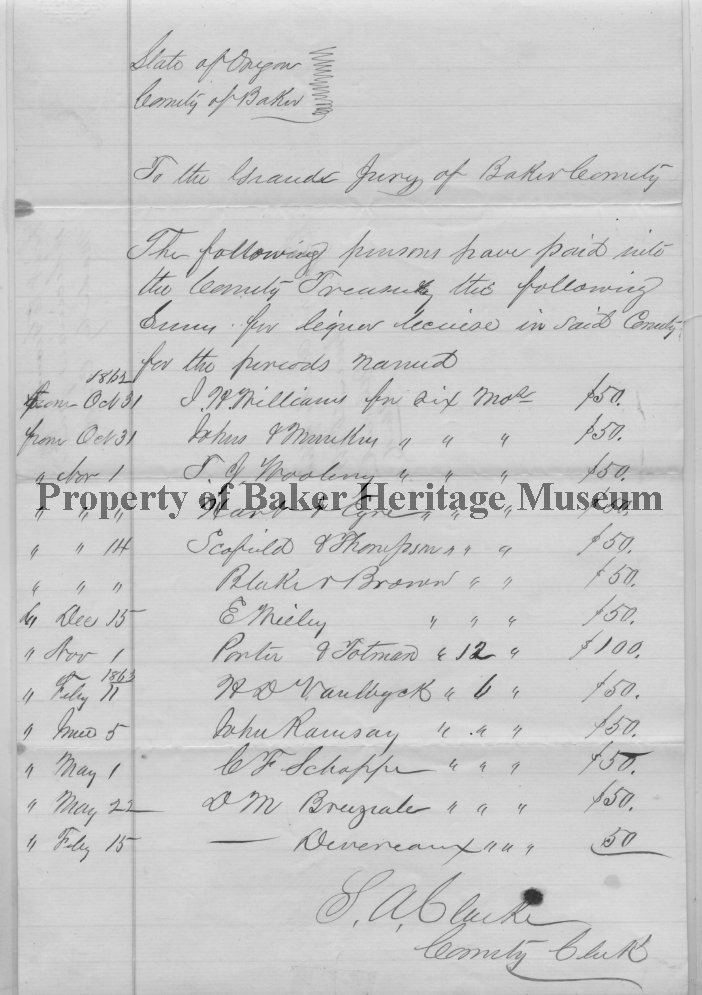 State of Oregon
County of Baker
To the Grand Jury of Baker County
The following persons have paid into
the County Treasury the following
Sums for liquor licuise in said County
for the periods named
1862
from Oct 31 J. H. Williams for six Mos $50.
from Oct 31 Johns & " " " $50.
" Nov 1 T. J. Wooleny " " " $50.
Property of Baker Heritage Museum
" " " Hart & Eyre " " " $50.
" " 14 Scofield & Thompson " " " $50.
" " " Blake & Brown " " $50.
" Dec 15 E Wieley " " " $50.
" Nov 1 Porter & Totman " 12 " $100.
1863
" Feby 11 H D VanWyck " 6 " $50.
" June 5 John Ramsay " " " $50.
" May 1 C F Schoppe " " " $50.
" May 22 — D M Breuziale " " " $50.
" Feby 15 — Devereaux " " " 50
S. A. Clarke
County Clerk